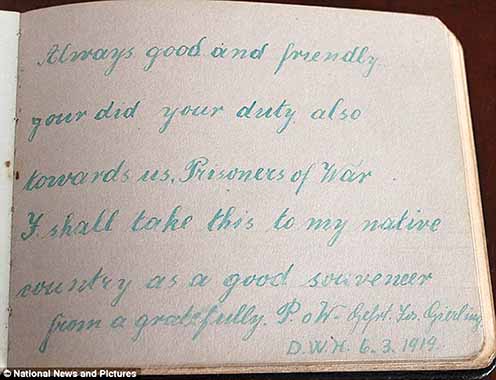 Always good and friendly
your did your duty also
towards us, Prisoners of War
I shall take this to my native
country as a good souveneer
from a gratefully. P. o W. Gefrt. Jos. Gierling
D.W.H. 6.3.1919.
© National News and Pictures